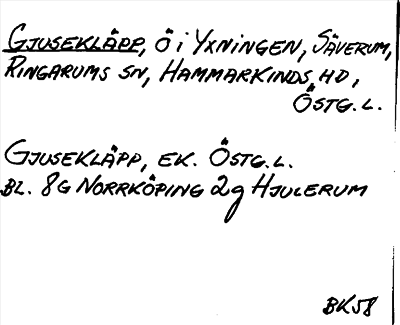 GJUSEKLÄPP, Ö i YXNINGEN, SÄVERUM,
RINGARUMS SN, HAMMARKINDS HD,
ÖSTG. L.
GJUSEKLÄPP, EK. ÖSTG. L.
BL. 8G NORRKÖPING 2g HJULERUM
BK58